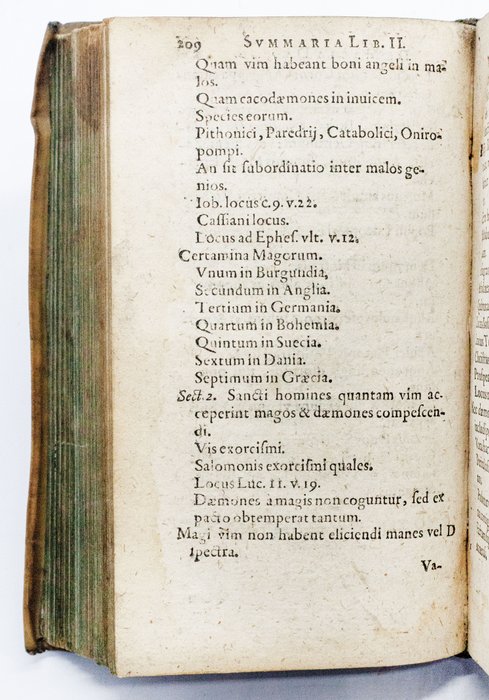 209 SVMMARIA LIB. II.
Quam vim habeant boni angeli in ma-
los.
Quam cacodæmones in inuicem.
Species eorum.
Pithonici, Paredrij, Catabolici, Oniro-
pompi.
An sit subordinatio inter malos ge-
nios.
Iob. locus c.9. v.22.
Cassiani locus.
Locus ad Ephes. vlt. v.12.
Certamina Magorum.
Vnum in Burgundia,
Secundum in Anglia.
Tertium in Germania.
Quartum in Bohemia.
Quintum in Suecia.
Sextum in Dania.
Septimum in Græcia.
Sect.2. Sancti homines quantam vim ac-
ceperint magos & dæmones compescen-
di.
Vis exorcismi.
Salomonis exorcismi quales.
Locus Luc. 11. v. 19.
Dæmones à magis non coguntur, sed ex
pacto obtemperat tantum.
Magi vim non habent eliciendi manes vel D
spectra.
Va-